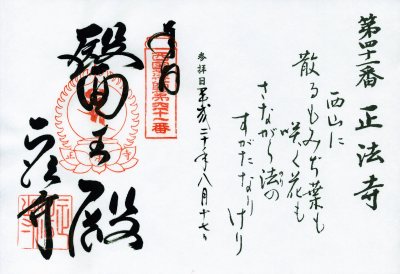 第四十一番 正法寺
西山に
散るもみぢ葉も
咲く花も
さながら法の
すがたなりけり
参拝日 平成二十年八月十七日
奉拝
醫王殿
正法寺